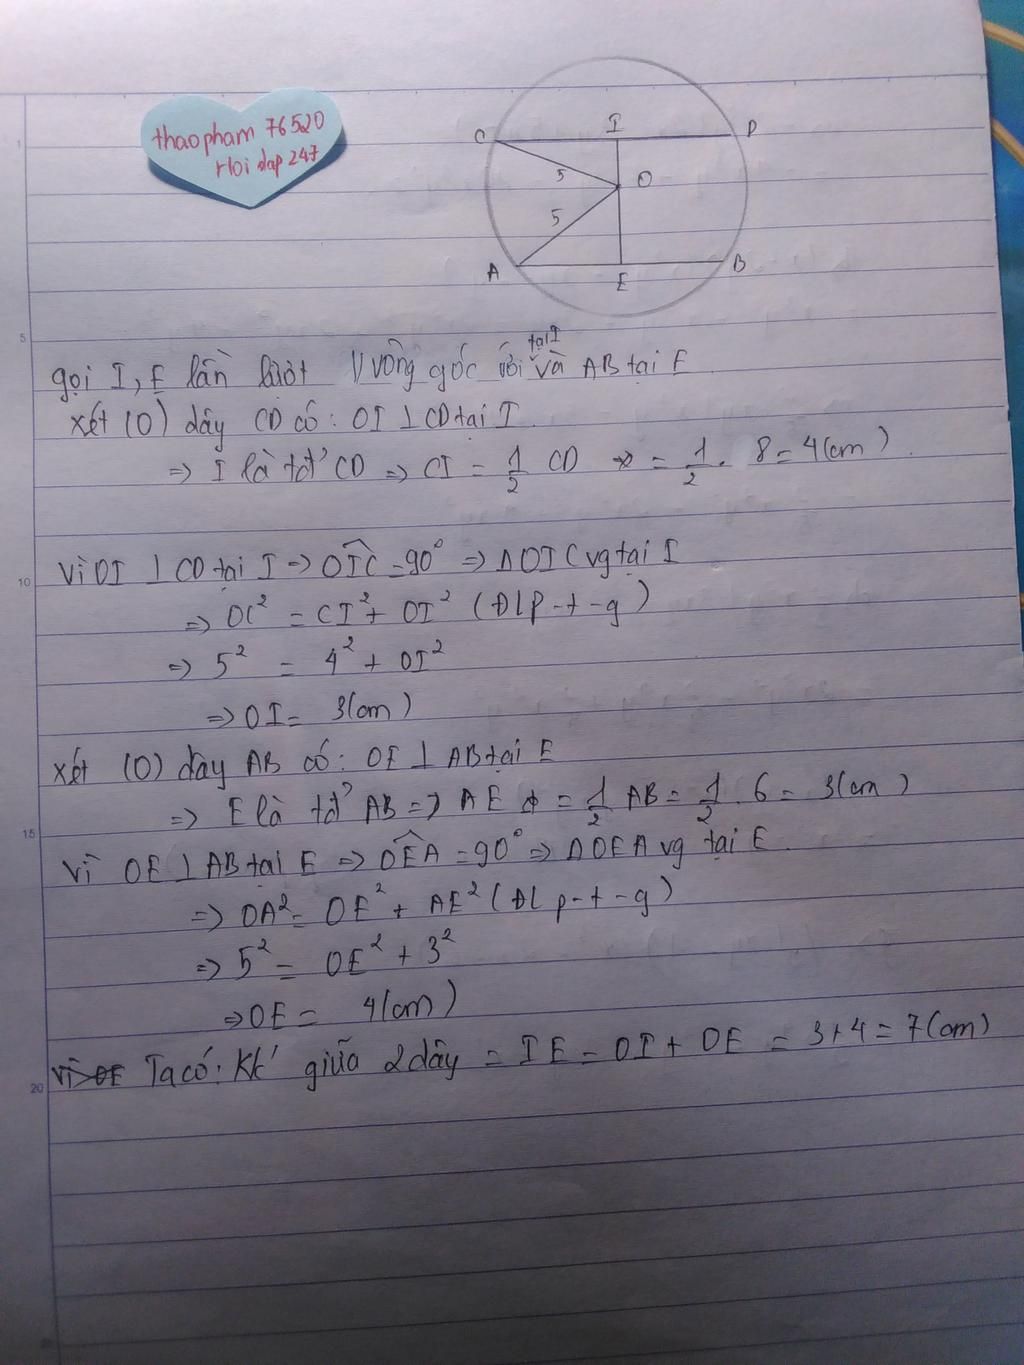 thaopham 76520
Hoi dap 247
C I D
5 O
5
A E B
tại I
gọi I, E lần lượt vuông góc với và AB tại E
xét (O) dây CD có: OI ⊥ CD tại I
=> I là tđ' CD => CI = 1/2 CD = 1/2 . 8 = 4(cm).
Vì OI ⊥ CD tại I => OIC^ = 90° => Δ OIC vg tại I
=> OC² = CI² + OI² (ĐL p-t-g)
=> 5² = 4² + OI²
=> OI = 3(cm)
xét (O) dây AB có: OE ⊥ AB tại E
=> E là tđ' AB => AE = 1/2 AB = 1/2 . 6 = 3(cm)
Vì OE ⊥ AB tại E => OEA^ = 90° => Δ OEA vg tại E.
=> OA² = OE² + AE² (ĐL p-t-g)
=> 5² = OE² + 3²
=> OE = 4(cm)
Ta có: KC' giữa 2 dây = IE = OI + OE = 3+4 = 7(cm)
1
5
10
15
20